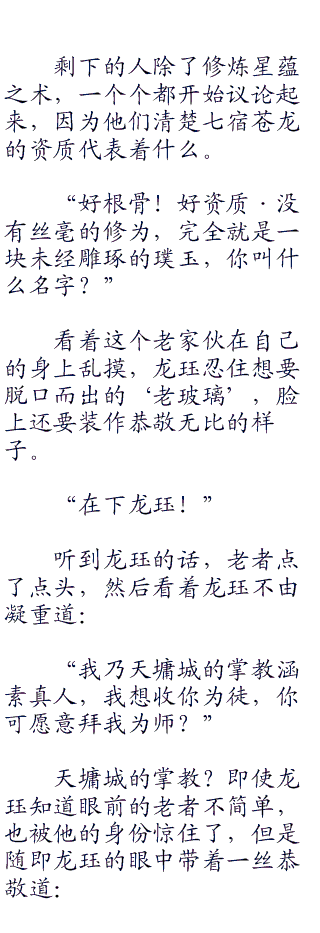 剩下的人除了修炼星蕴
之术，一个个都开始议论起
来，因为他们清楚七宿苍龙
的资质代表着什么。
“好根骨！好资质·没
有丝毫的修为，完全就是一
块未经雕琢的璞玉，你叫什
么名字？”
看着这个老家伙在自己
的身上乱摸，龙珏忍住想要
脱口而出的‘老玻璃’，脸
上还要装作恭敬无比的样
子。
“在下龙珏！”
听到龙珏的话，老者点
了点头，然后看着龙珏不由
凝重道：
“我乃天墉城的掌教涵
素真人，我想收你为徒，你
可愿意拜我为师？”
天墉城的掌教？即使龙
珏知道眼前的老者不简单，
也被他的身份惊住了，但是
随即龙珏的眼中带着一丝恭
敬道：